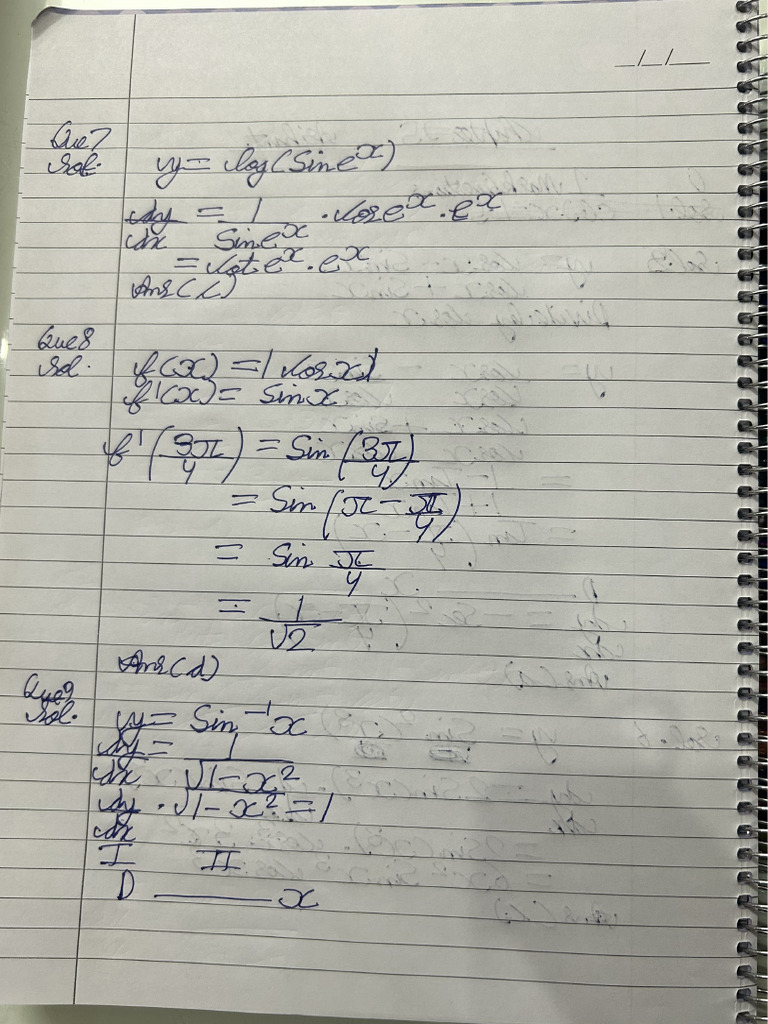 _/_/_
Que7
Sol. y = log(Sin e^x)
dy/dx = 1/Sin e^x · Cos e^x · e^x
= Cot e^x · e^x
Ans(c)
Que8
Sol. f(x) = |Cos x|
f'(x) = Sin x
f'(3π/4) = Sin(3π/4)
= Sin(π - π/4)
= Sin π/4
= 1/√2
Ans(d)
Que9
Sol. y = Sin⁻¹x
dy/dx = 1/√1-x²
dy/dx · √1-x² = 1
I II
D ______ x